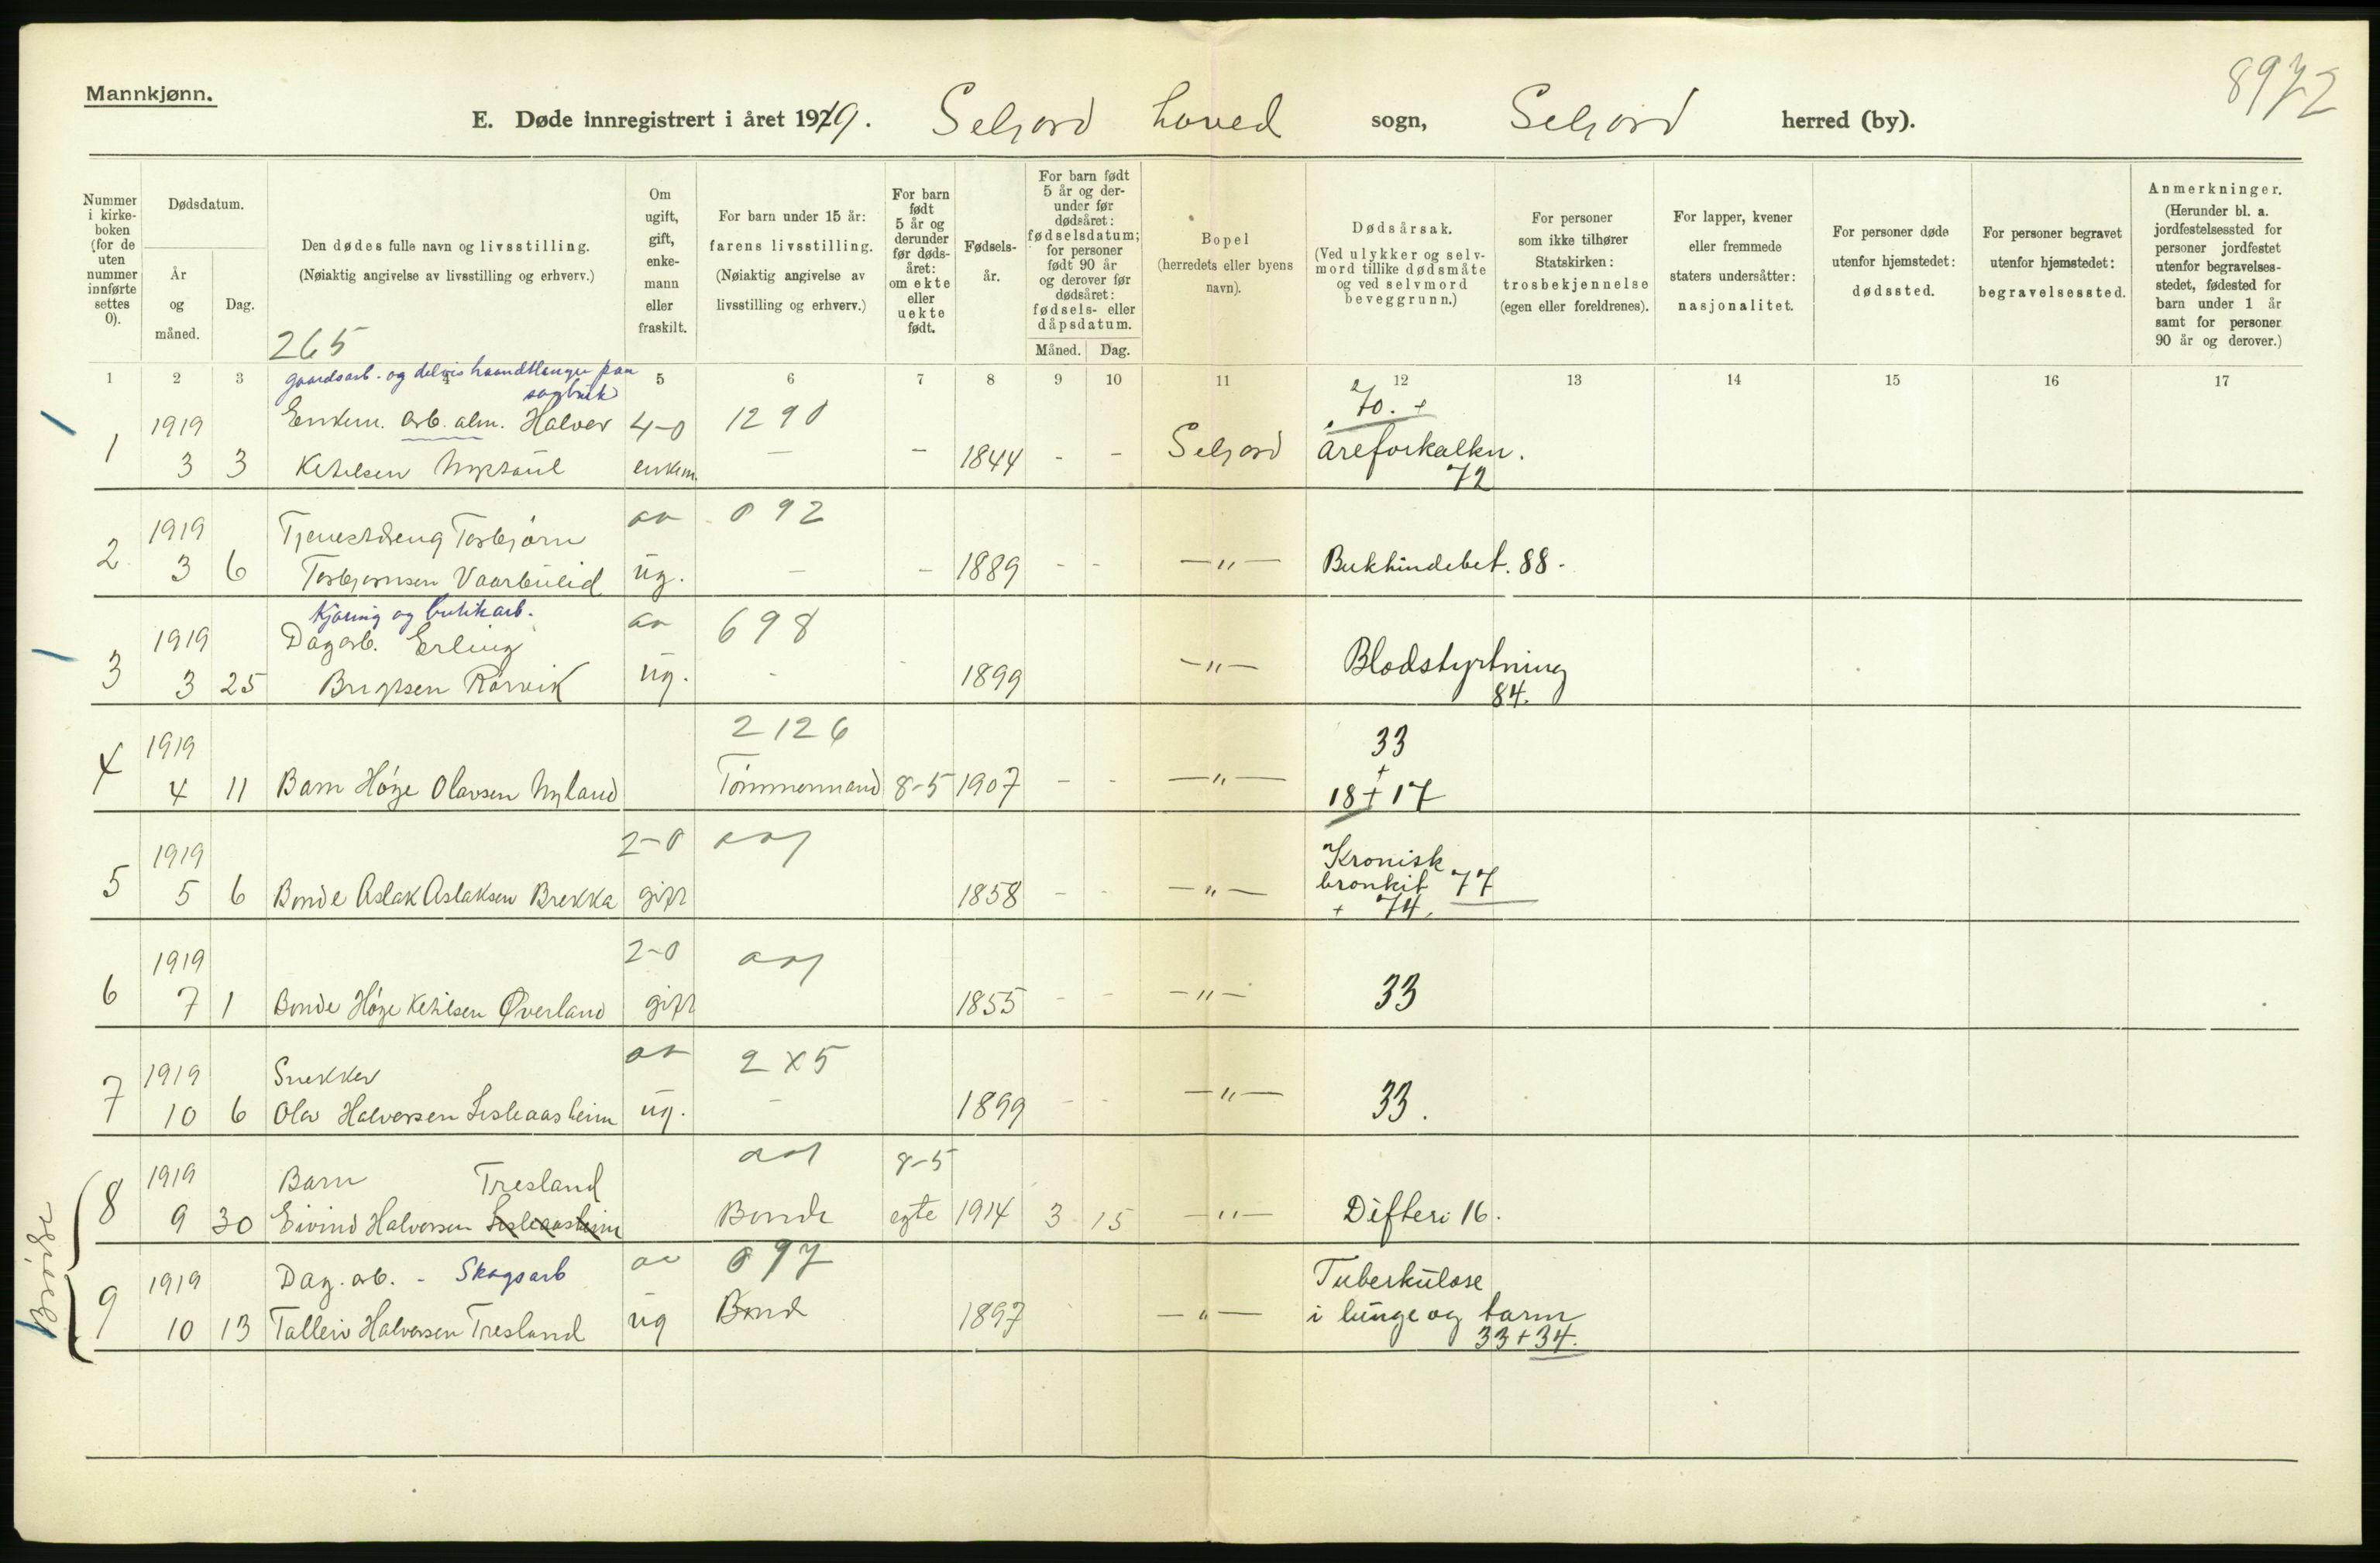 Mannkjønn.
8972
E. Døde innregistrert i året 1919. Seljord hoved sogn, Seljord herred (by).
Nummer i kirke-boken (for de uten nummer innførte settes 0).
Dødsdatum.
År og måned.
Dag.
Den dødes fulle navn og livsstilling.
(Nøiaktig angivelse av livsstilling og erhverv.)
265
Om ugift, gift, enke-mann eller fraskilt.
For barn under 15 år:
farens livsstilling.
(Nøiaktig angivelse av livsstilling og erhverv.)
For barn født 5 år og derunder før døds-året: om ekte eller uekte født.
Fødsels-år.
For barn født 5 år og der-under før dødsåret: fødselsdatum; for personer født 90 år og derover før dødsåret: fødsels- eller dåpsdatum.
Måned. Dag.
Bopel
(herredets eller byens navn).
Dødsårsak.
(Ved ulykker og selv-mord tillike dødsmåte og ved selvmord beveggrunn.)
For personer som ikke tilhører Statskirken: trosbekjennelse (egen eller foreldrenes).
For lapper, kvener eller fremmede staters undersåtter: nasjonalitet.
For personer døde utenfor hjemstedet: dødssted.
For personer begravet utenfor hjemstedet: begravelsessted.
Anmerkninger.
(Herunder bl. a. jordfestelsessted for personer jordfestet utenfor begravelses-stedet, fødested for barn under 1 år samt for personer 90 år og derover.)
1 2 3 4 5 6 7 8 9 10 11 12 13 14 15 16 17
gaardsarb. og delvis haandtlanger paa
sagbruk
1919 Enkem. arb. alm. Halvor 4-0 1290 70. +
1 3 3 Ketilsen enkem. — – 1844 - - Seljord åreforkalkn.
72
1919 Tjenestdreng Torbjørn 092
2 3 6 Torbjørnsen Vaarbuleid ug. — – 1889 - - —"— Bukhindebet. 88.
Kjøring og butikarb.
1919 Dagarb. Erling 698
3 3 25 Brynjlsen Rorvik ug. - 1899 —"— Blodstyrtning
84.
1919 2126 33
+
4 4 11 Barn Høije Olavsen Nyland Tømmermand 8-5 1907 - - —"— 18 + 17
1919 2-0 Kronisk
5 5 6 Bonde Aslak Aslaksen Brekka gift 1858 - - —"— bronkit 77
+ 74.
1919 2-0
6 7 1 Bonde Høije Ketilsen Øverland gift 1855 - - —"— 33
1919 Snekker 2 x 5
7 10 6 Olav Halvorsen Lisleaasheim ug. - 1899 - - —"— 33.
1919 Barn Tresland 8-5
8 9 30 Eivind Halvorsen Lisleaasheim Bonde egte 1914 3 15 —"— Difteri 16.
Brødre
1919 Dag. arb. - Skogsarb 097 Tuberkulose
9 10 13 Talleiv Halvorsen Tresland ug Bond 1897 —"— i lunge og tarm
33 + 34.